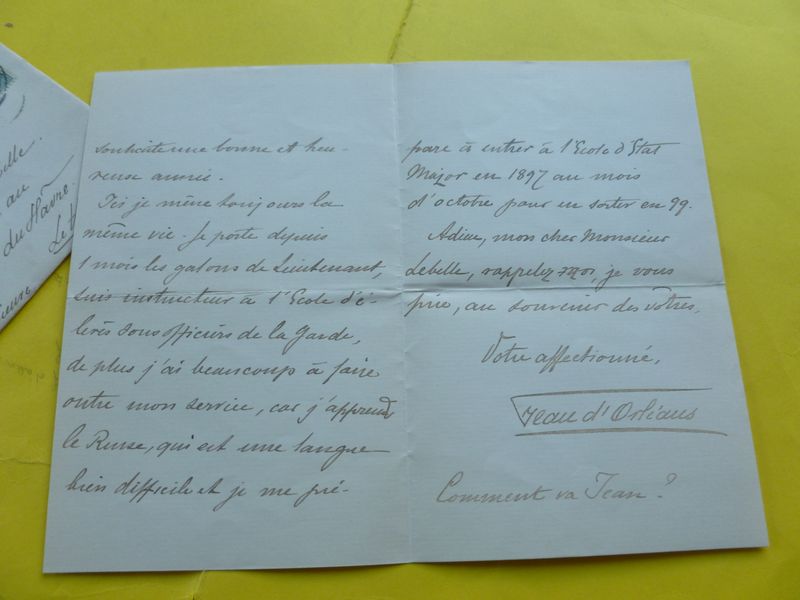 souhaite une bonne et heu-
reuse année.
Ici je mène toujours la
même vie. Je porte depuis
1 mois les galons de Lieutenant,
suis instructeur à l'Ecole d'é-
lèves sous officiers de la Garde,
de plus j'ai beaucoup à faire
outre mon service, car j'apprends
le Russe, qui est une langue
bien difficile et je me pré-
pare à entrer à l'Ecole d'Etat
Major en 1897 au mois
d'octobre pour en sortir en 99.
Adieu, mon cher Monsieur
Lebelle, rappelez-moi, je vous
prie, au souvenir des vôtres.
Votre affectionné,
Jean d'Orléans
Comment va Jean?
elle
au
du Hâvre.
Le H
ieure